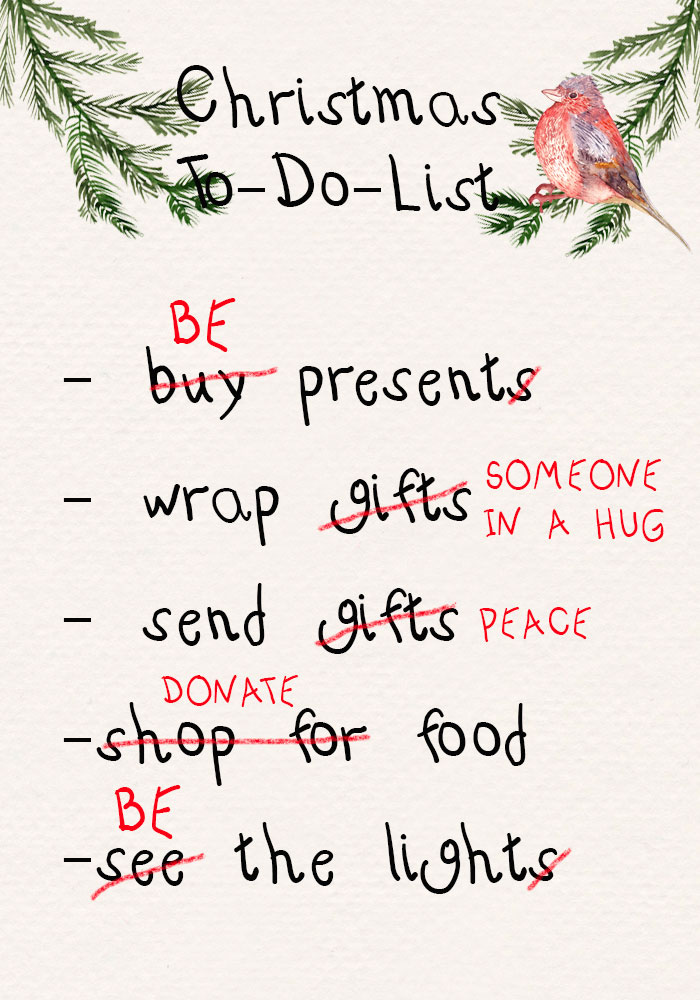 Christmas
To-Do-List
BE
- buy presents
- wrap gifts SOMEONE
IN A HUG
- send gifts PEACE
DONATE
- shop for food
BE
- see the lights